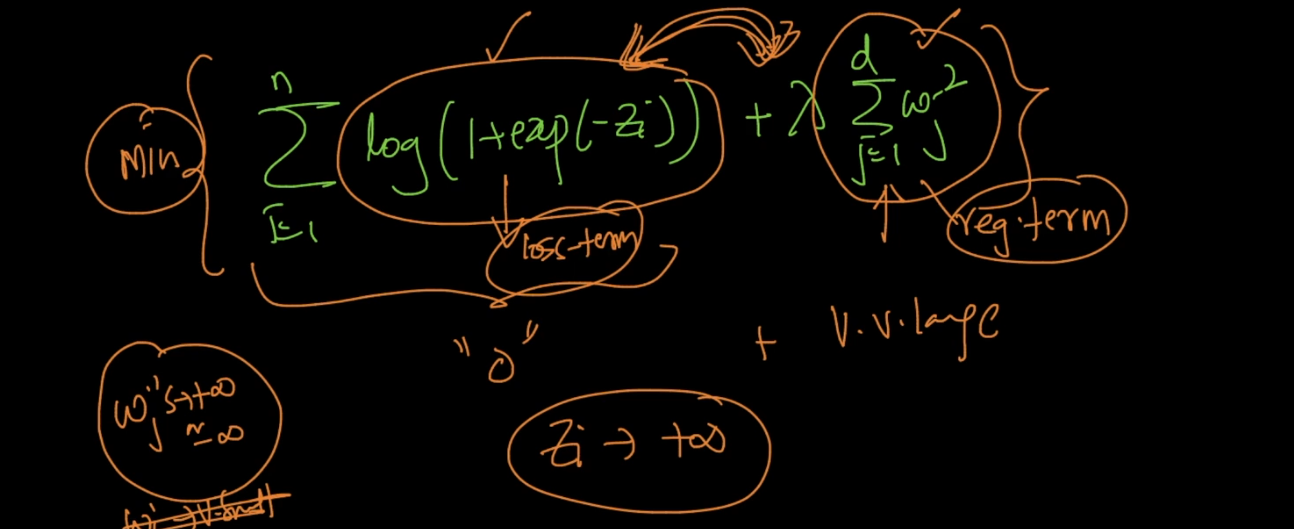 min { Σ_{i=1}^{n} log(1+exp(-Zi)) + λ Σ_{j=1}^{d} ω_j^2 }
loss-term
reg.term
"0" + V.V.large
ωj's→+∞
≈ ∞
Zi → +∞